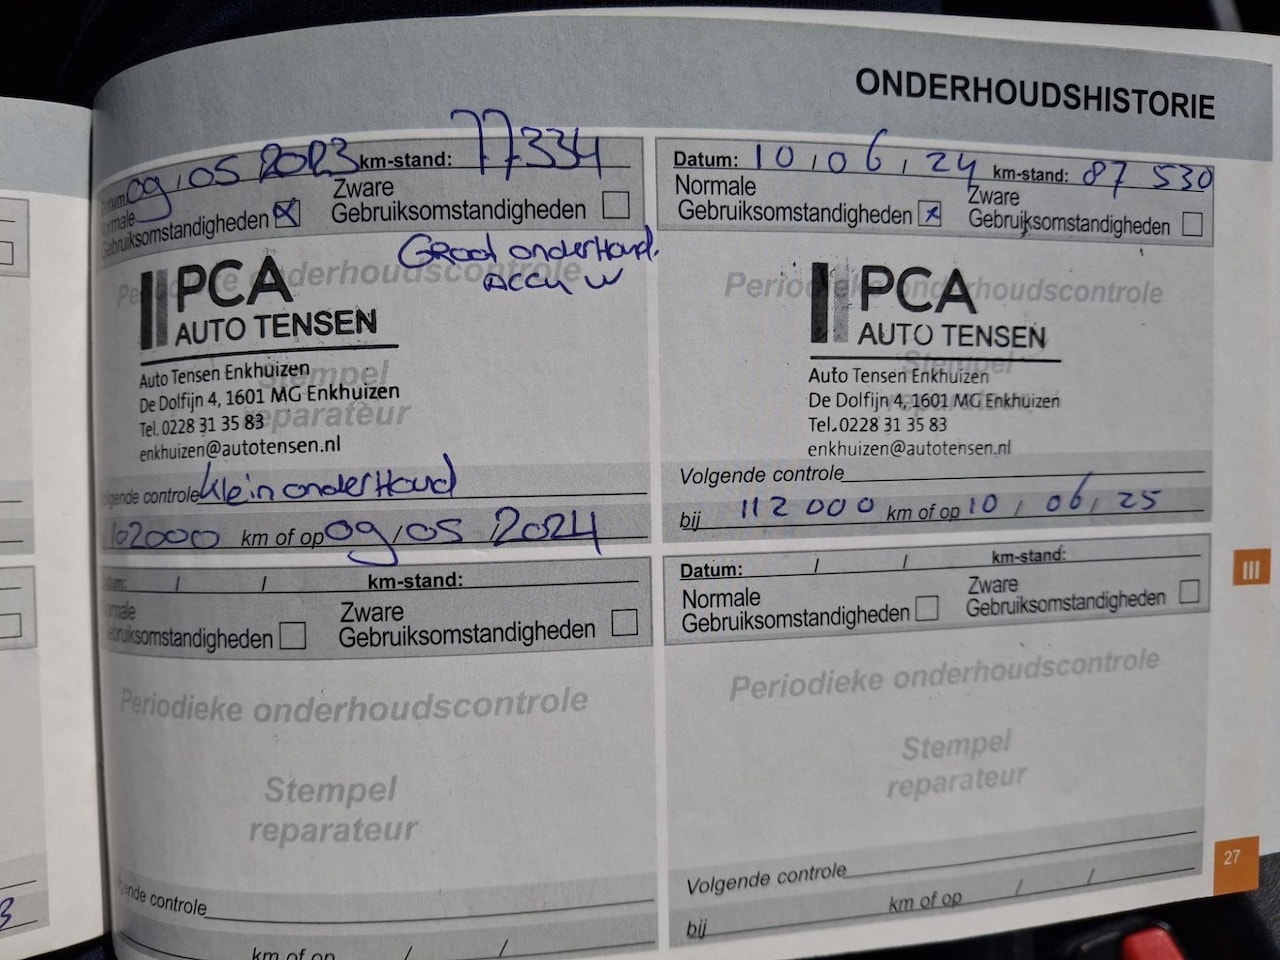 ONDERHOUDSHISTORIE
Datum: 09/05 2023 km-stand: 77334
Normale
Gebruiksomstandigheden
Zware
Gebruiksomstandigheden
Groot onderhoud.
ACCU W
Periodieke onderhoudscontrole
PCA
AUTO TENSEN
Stempel
reparateur
Auto Tensen Enkhuizen
De Dolfijn 4, 1601 MG Enkhuizen
Tel. 0228 31 35 83
enkhuizen@autotensen.nl
Volgende controle Klein onderHoud
102000 km of op 09/05 2024
Datum: 10/06/24 km-stand: 87 530
Normale
Gebruiksomstandigheden
Zware
Gebruiksomstandigheden
Periodieke onderhoudscontrole
PCA
AUTO TENSEN
Stempel
Auto Tensen Enkhuizen
De Dolfijn 4, 1601 MG Enkhuizen
Tel. 0228 31 35 83
enkhuizen@autotensen.nl
Volgende controle
bij 112 000 km of op 10/06/25
Datum: / / km-stand:
Normale
Gebruiksomstandigheden
Zware
Gebruiksomstandigheden
Periodieke onderhoudscontrole
Stempel
reparateur
Volgende controle
km of op / /
Datum: / / km-stand:
Normale
Gebruiksomstandigheden
Zware
Gebruiksomstandigheden
Periodieke onderhoudscontrole
Stempel
reparateur
Volgende controle
bij km of op / /
III
27
3